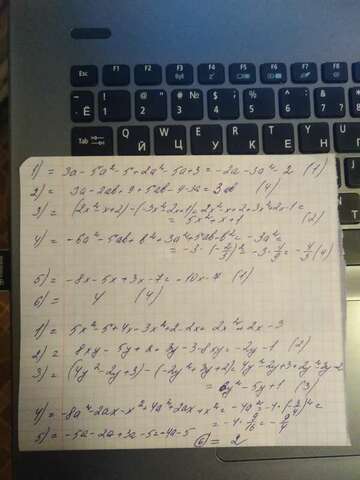 Esc F1 F2 F3 F4 F5 F6 F7 F8
1 2 3 4 5 6 7 8
Ё № $ % : ? *
Tab Й Ц У К Е Н Г
1) = 3a - 5a² - 5 + 2a² - 5a + 3 = -2a - 3a² - 2 (1)
2) = 3a - 2ab + 9 + 5ab - 9 - 3a = 3ab (4)
3) = (2x² - x + 2) - (-3x² - 2x + 1) = 2x² - x + 2 + 3x² + 2x - 1 =
= 5x² + x + 1 (2)
4) = -6a² - 5ab + b² + 3a² + 5ab - b² = -3a² =
= -3 · (-2/3)² = -3 · 4/9 = -4/3 (4)
5) = -8x - 5x + 3x - 7 = -10x - 7 (1)
6) = 4 (4)
1) = 5x² - 5 + 4x - 3x² + 2 - 2x = 2x² + 2x - 3
2) = 8xy - 5y + x + 3y - 3 - 8xy = -2y - 1 (2)
3) = (4y² - 2y + 3) - (-2y² + 3y + 2) = 4y² - 2y + 3 + 2y² - 3y - 2
= 6y² - 5y + 1 (3)
4) = -8a² - 2ax - x² + 4a² + 2ax + x² = -4a² = -4 · (-3/4)² =
= -4 · 9/16 = -9/4
5) = -5a - 2a + 3a - 5 = -4a - 5
6) = 2